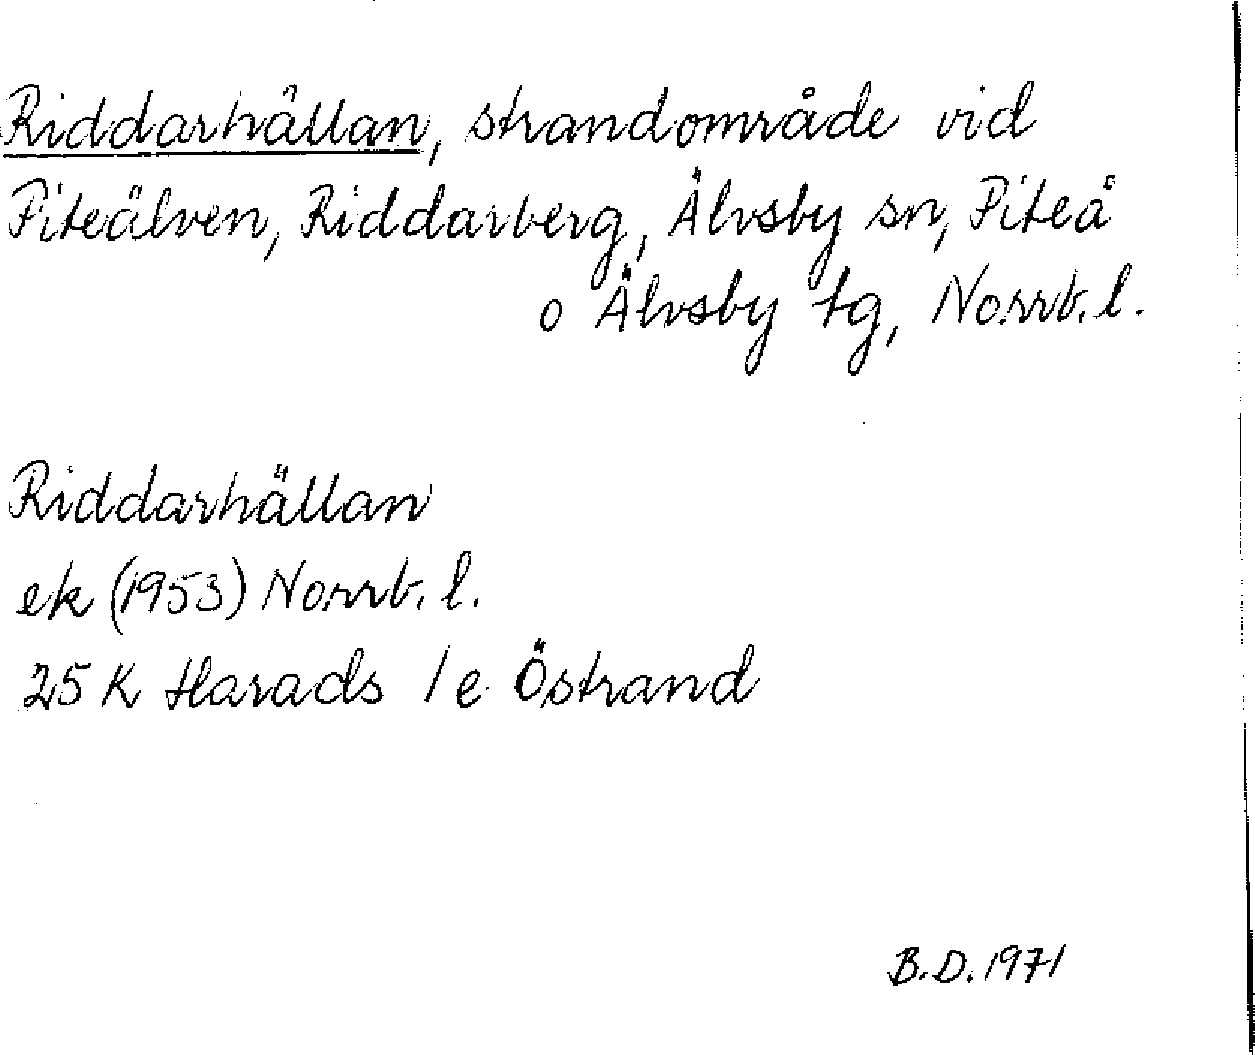 Riddarhällan, strandområde vid
Piteälven, Riddarberg, Älvsby sn, Piteå
o Älvsby tg, Norrb. l.
Riddarhällan
ek (1953) Norrb. l.
25 K Harads 1 e Östrand
B.D. 1971